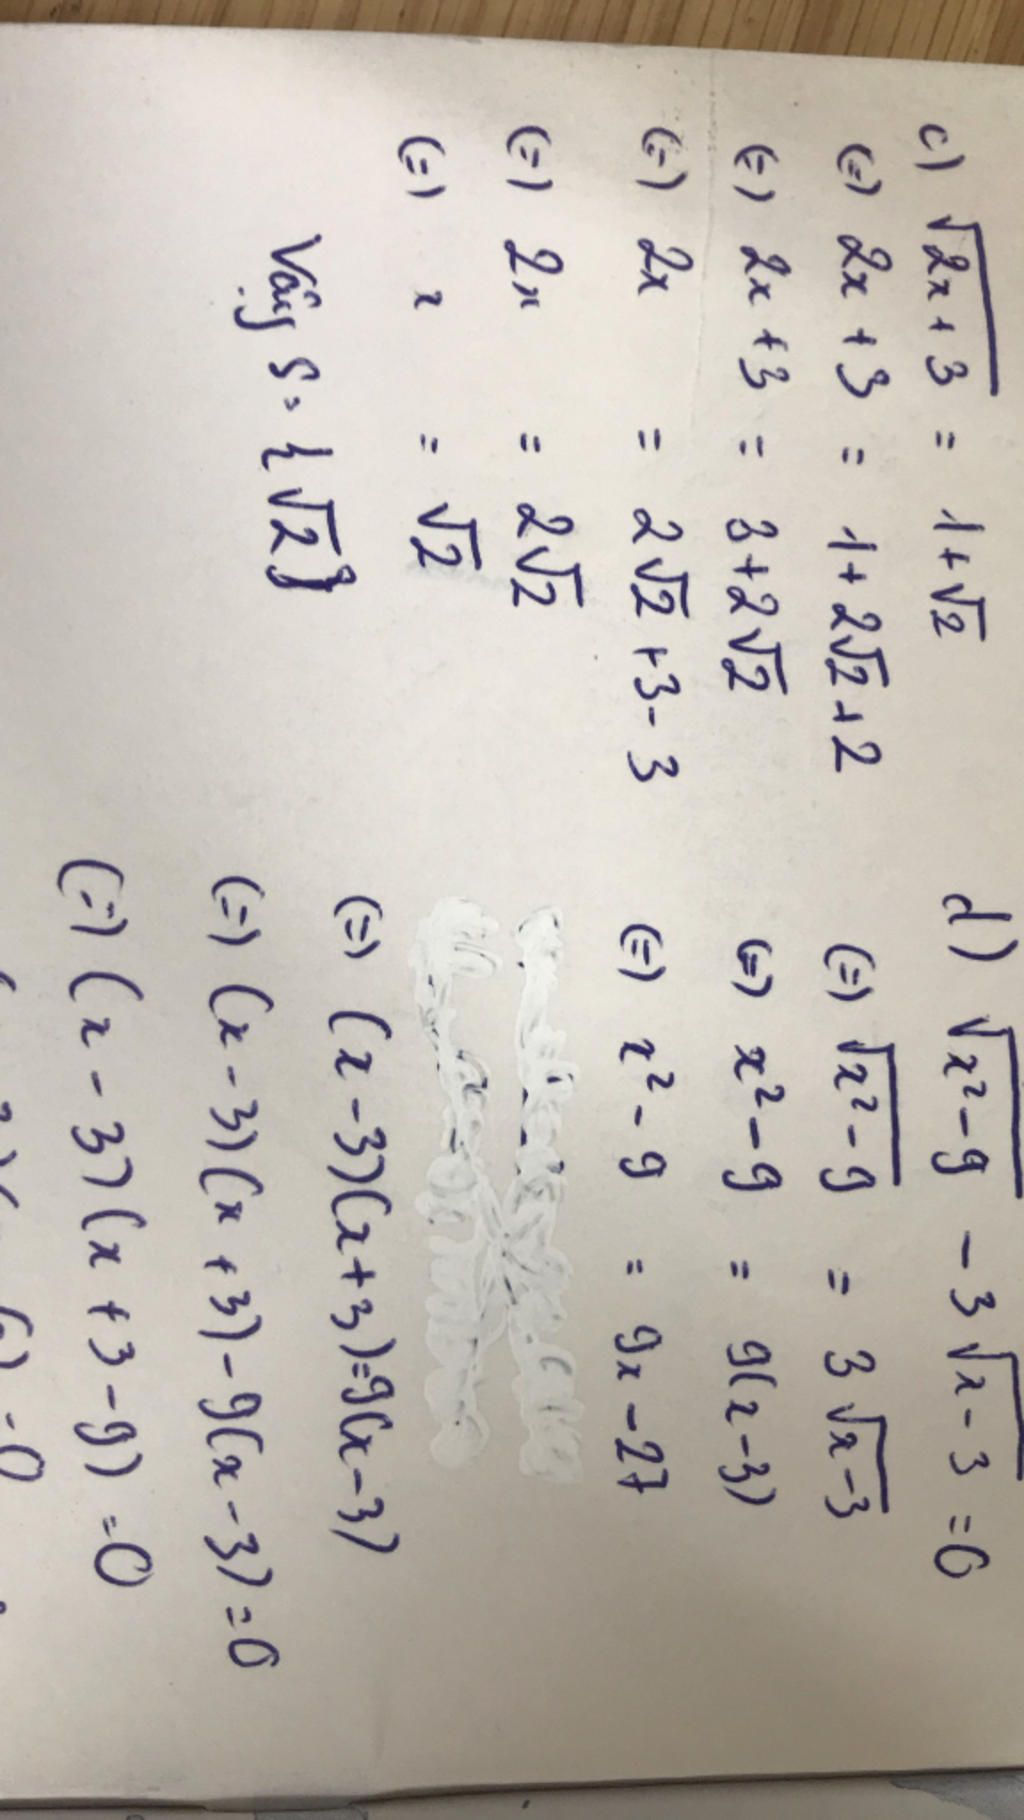 c) √2x+3 = 1+√2
(=) 2x+3 = 1+2√2+2
(=) 2x+3 = 3+2√2
(=) 2x = 2√2+3-3
(=) 2x = 2√2
(=) x = √2
Vậy S= {√2}
d) √x²-9 - 3√x-3 =0
(=) √x²-9 = 3√x-3
(=) x²-9 = 9(x-3)
(=) x²-9 = 9x-27
(=) (x-3)(x+3)=9(x-3)
(=) (x-3)(x+3)-9(x-3)=0
(=) (x-3)(x+3-9)=0